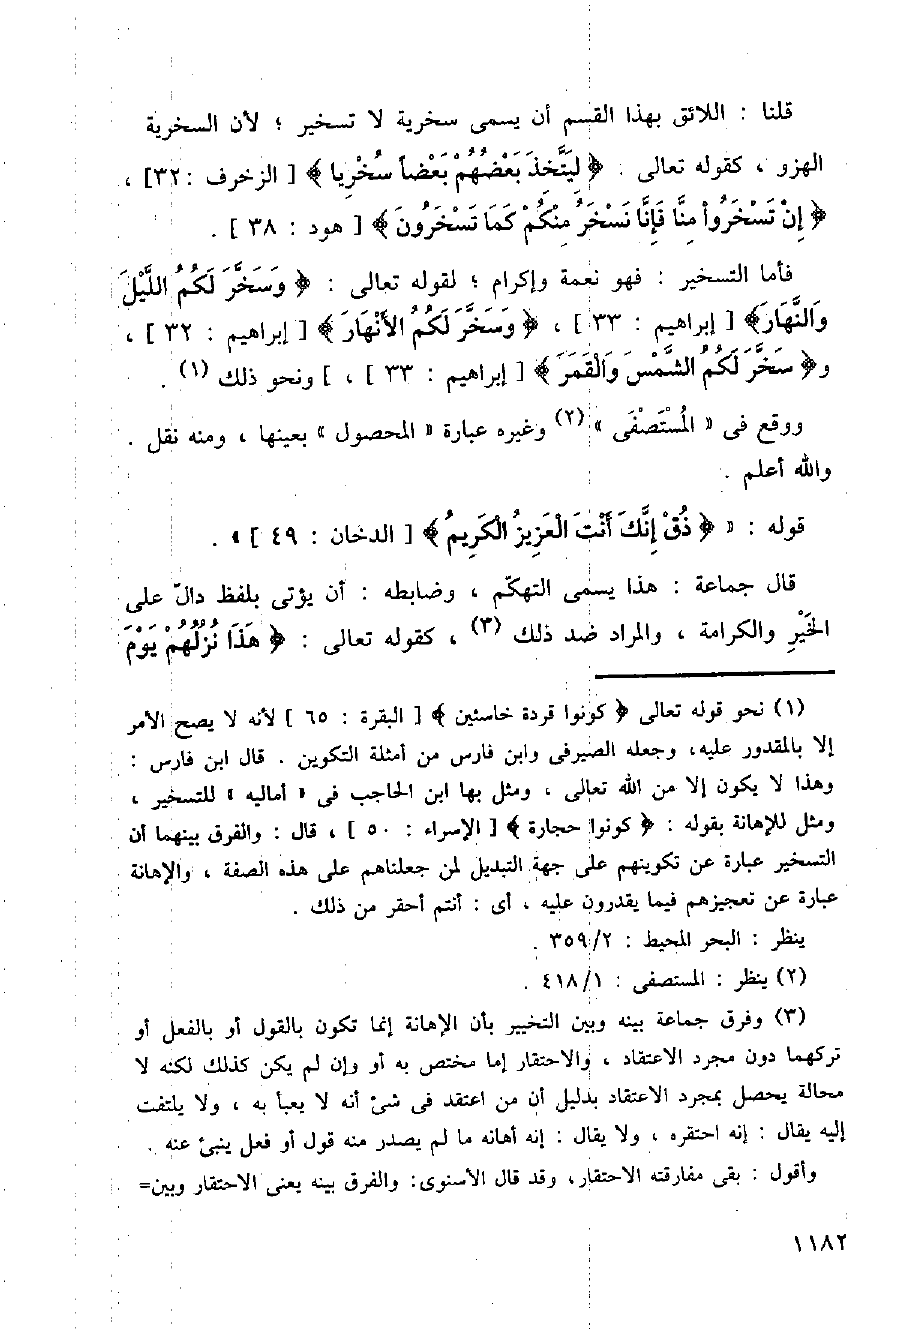 قلنا : اللائق بهذا القسم أن يسمى سخرية لا تسخير ؛ لأن السخرية
الهزو ، كقوله تعالى . ﴿ لِيَتَّخِذَ بَعْضُهُمْ بَعْضاً سُخْرِيا ﴾ [ الزخرف : ٣٢] ،
﴿ إِنْ تَسْخَرُواْ مِنَّا فَإِنَّا نَسْخَرُ مِنْكُمْ كَمَا تَسْخَرُونَ ﴾ [ هود : ٣٨ ] .
فأما التسخير : فهو نعمة وإكرام ؛ لقوله تعالى : ﴿ وَسَخَّرَ لَكُمُ اللَّيْلَ
وَالنَّهَارَ﴾ [ إبراهيم : ٣٣ ] ، ﴿ وَسَخَّرَ لَكُمُ الأَنْهَارَ ﴾ [ إبراهيم : ٣٢ ] ،
و﴿ سَخَّرَ لَكُمُ الشَّمْسَ وَالْقَمَرَ ﴾ [ إبراهيم : ٣٣ ] ، ] ونحو ذلك (١) .
ووقع فى « الْمُسْتَصْفَى » (٢) وغيره عبارة « المحصول » بعينها ، ومنه نقل .
والله أعلم .
قوله : « ﴿ ذُقْ إِنَّكَ أَنْتَ الْعَزِيزُ الْكَرِيمُ ﴾ [ الدخان : ٤٩ ] » .
قال جماعة : هذا يسمى التهكّم ، وضابطه : أن يؤتى بلفظ دالّ على
الخَيْرِ والكرامة ، والمراد ضد ذلك (٣) ، كقوله تعالى : ﴿ هَذَا نُزُلُهُمْ يَوْمَ
(١) نحو قوله تعالى ﴿ كونوا قردة خاسئين ﴾ [ البقرة : ٦٥ ] لأنه لا يصح الأمر
إلا بالمقدور عليه، وجعله الصيرفى وابن فارس من أمثلة التكوين . قال ابن فارس :
وهذا لا يكون إلا من الله تعالى ، ومثل بها ابن الحاجب فى « أماليه » للتسخير ،
ومثل للإهانة بقوله : ﴿ كونوا حجارة ﴾ [ الإسراء : ٥٠ ] ، قال : والفرق بينهما أن
التسخير عبارة عن تكوينهم على جهة التبديل لمن جعلناهم على هذه الصفة ، والإهانة
عبارة عن تعجيزهم فيما يقدرون عليه ، أى : أنتم أحقر من ذلك .
ينظر : البحر المحيط : ٣٥٩/٢ .
(٢) ينظر : المستصفى : ٤١٨/١ .
(٣) وفرق جماعة بينه وبين التخيير بأن الإهانة إنما تكون بالقول أو بالفعل أو
تركهما دون مجرد الاعتقاد ، والاحتقار إما مختص به أو وإن لم يكن كذلك لكنه لا
محالة يحصل بمجرد الاعتقاد بدليل أن من اعتقد فى شئ أنه لا يعبأ به ، ولا يلتفت
إليه يقال : إنه احتقره ، ولا يقال : إنه أهانه ما لم يصدر منه قول أو فعل ينبئ عنه .
وأقول : بقى مفارقته الاحتقار، وقد قال الأسنوى: والفرق بينه يعنى الاحتقار وبين=
١١٨٢